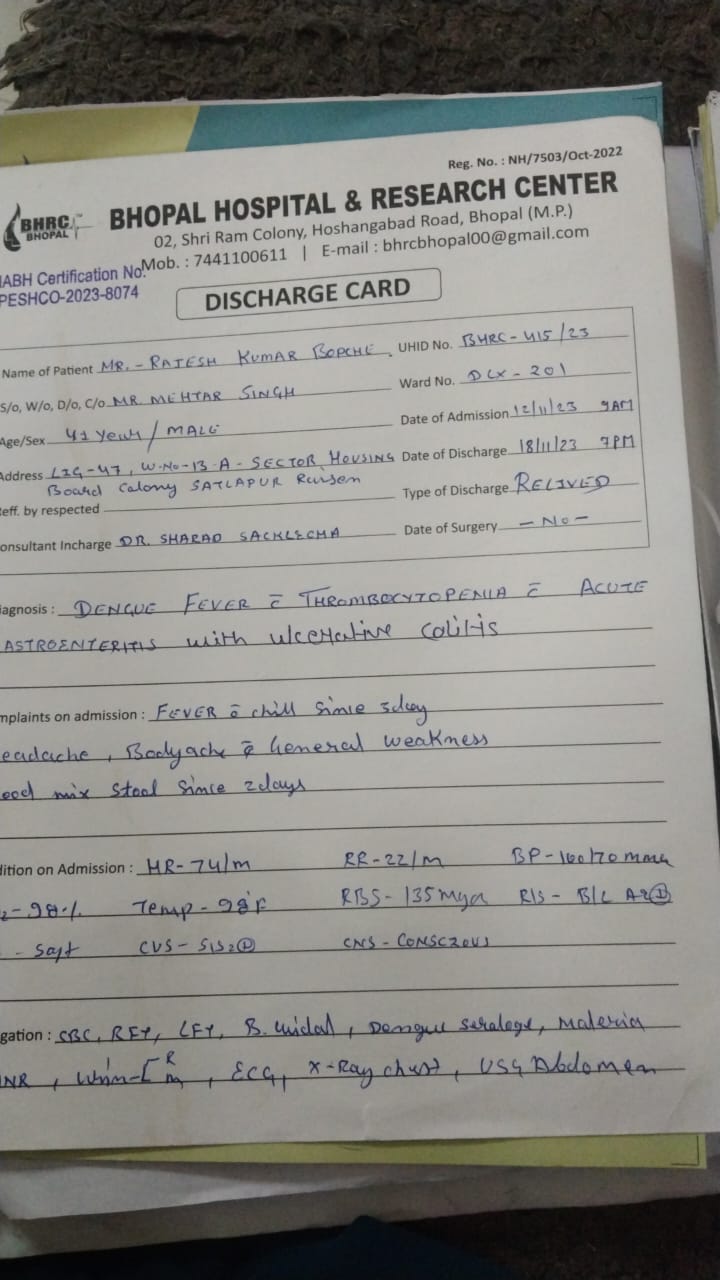 Reg. No. : NH/7503/Oct-2022
BHRC BHOPAL
BHOPAL HOSPITAL & RESEARCH CENTER
02, Shri Ram Colony, Hoshangabad Road, Bhopal (M.P.)
Mob. : 7441100611 | E-mail : bhrcbhopal00@gmail.com
ABH Certification No.
PESHCO-2023-8074
DISCHARGE CARD
Name of Patient MR. - RAJESH KUMAR BOPCHE UHID No. BHRC-415/23
S/o, W/o, D/o, C/o MR. MEHTAR SINGH Ward No. DLX-201
Age/Sex 41 Year / MALE Date of Admission 12/11/23 9AM
Address LIG-47, W.NO-13 A-SECTOR HOUSING Date of Discharge 18/11/23 7PM
Board Colony SATLAPUR Raisen
Reff. by respected Type of Discharge RELIVED
onsultant Incharge DR. SHARAD SACKLECHA Date of Surgery - No -
iagnosis : DENGUE FEVER c̄ THROMBOCYTOPENIA c̄ ACUTE
ASTROENTERITIS with ulcerative colitis
mplaints on admission : FEVER c̄ chill since 3day
eadache, Bodyache c̄ General weakness
ood mix stool since 2days
dition on Admission : HR-74/m RR-22/m BP-160/70
2-98% Temp-98°F RBS-135 R/S-B/L
- Soft CVS-S1S2 CNS-CONSCIOUS
gation : CBC, RFT, LFT, B. widal, Dengue serology, Maleria
INR, ECG, X-Ray chest, USG Abdomen